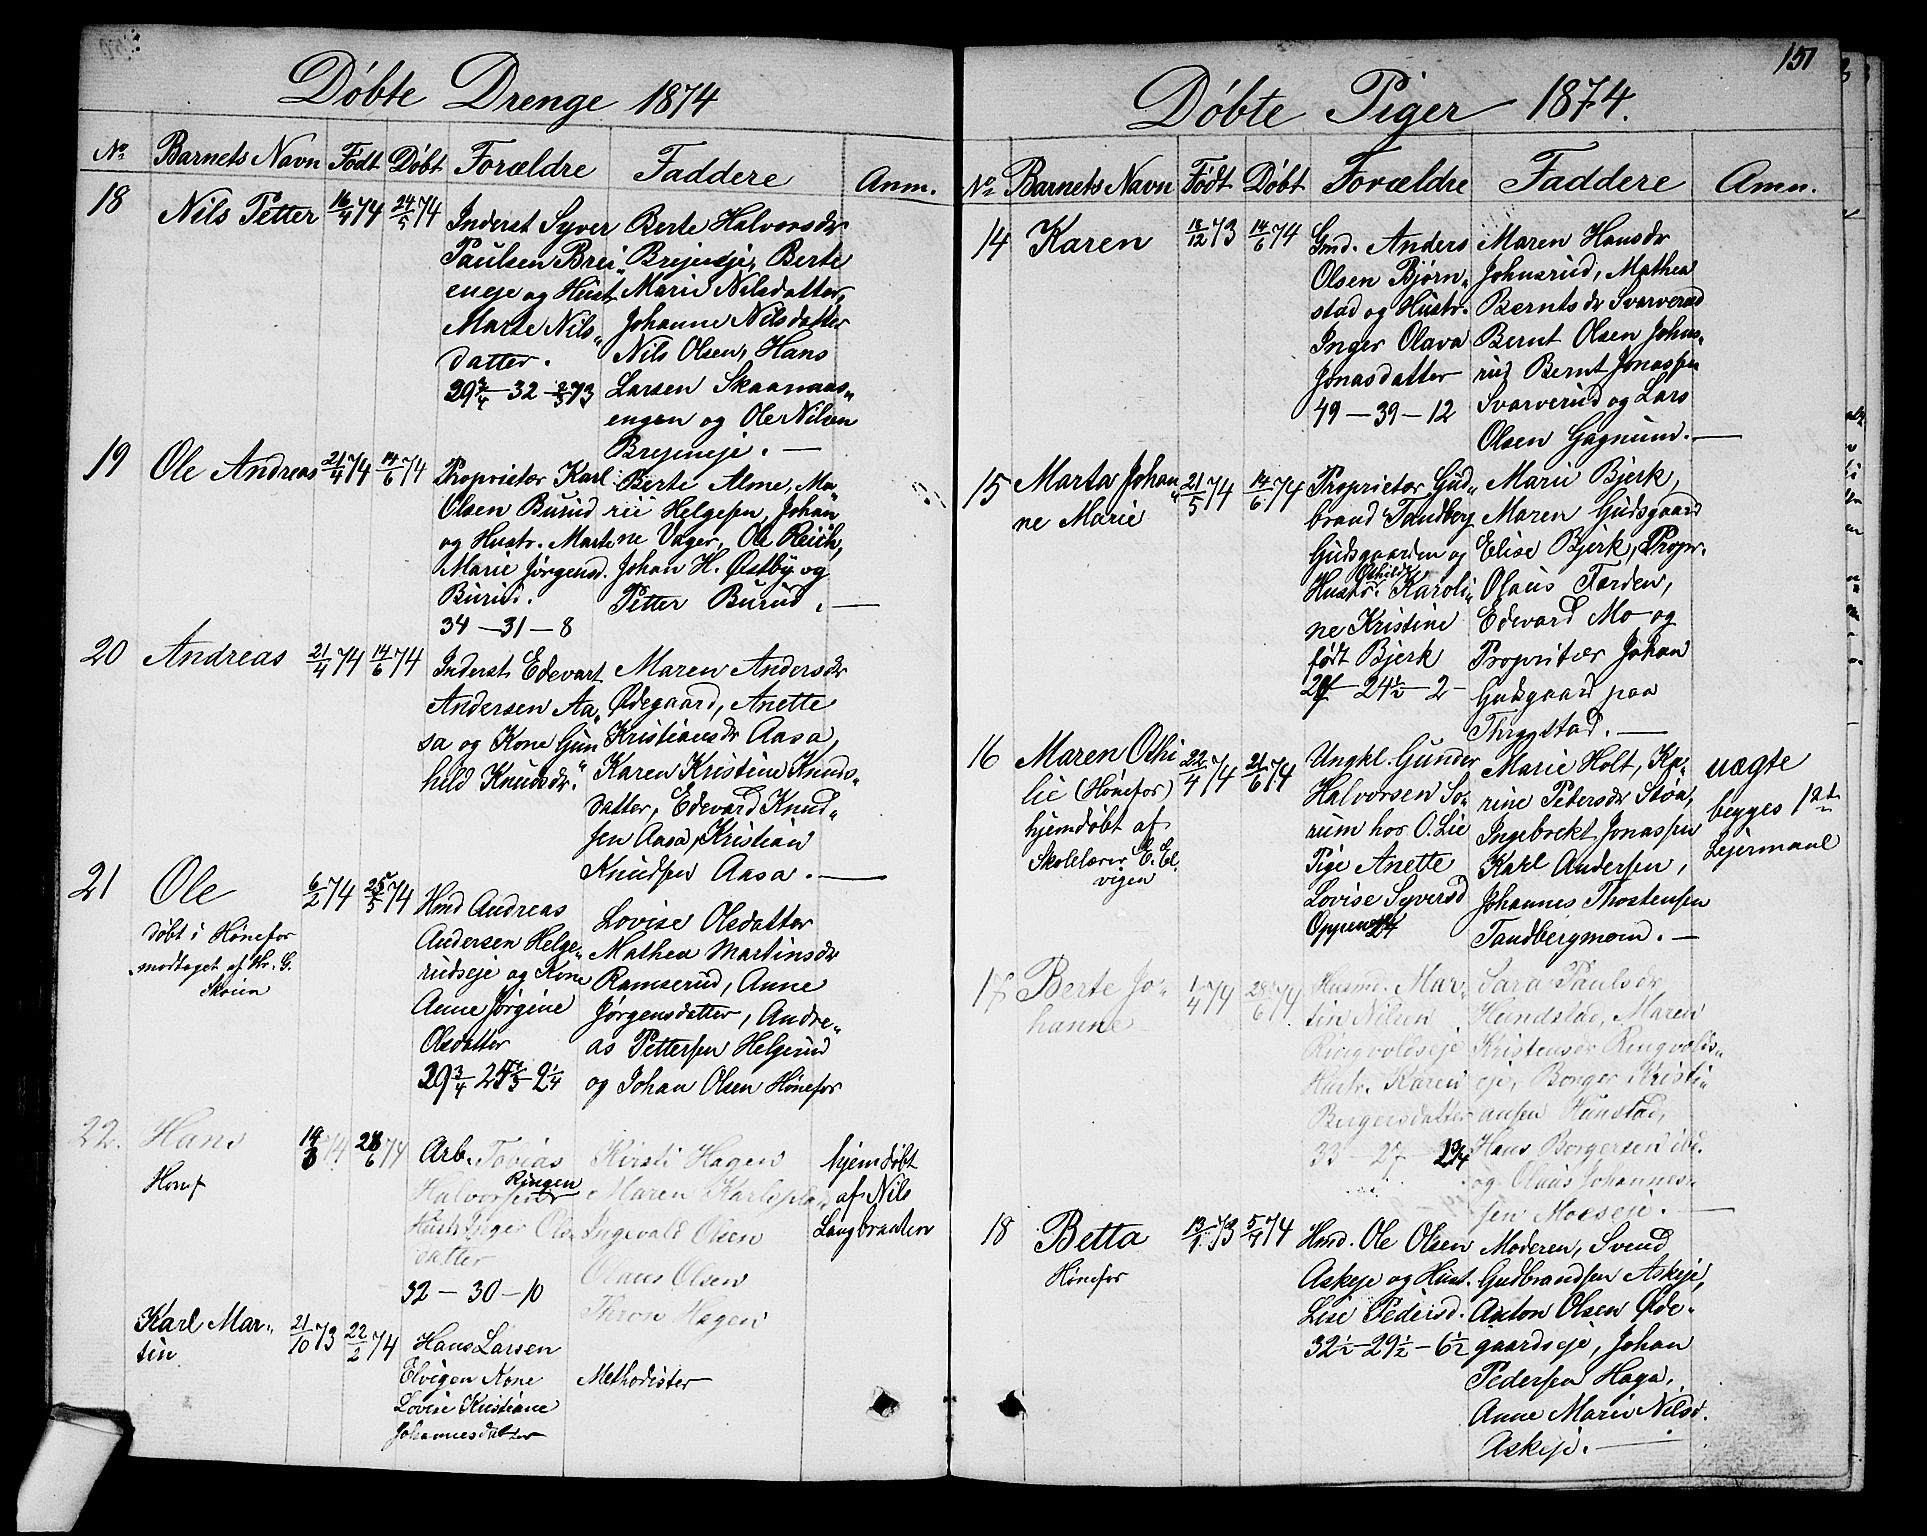 Døbte Drenge 1874
No Barnets Navn Født Døbt Forældre Faddere Anm.
18 Nils Petter 16/4 74 24/5 74
Inderst Syver
Paulsen Brei„
eneje og Hust
Marte Nils„
datter.
29 3/4 — 32
Berte Halvorsdr
Brejeneje, Berte
Marie Nilsdatter,
Johanne Nilsdatter
Nils Olsen, Hans
Larsen Skaanaas„
engen og Ole Nilsen
Brejeneje. —
19 Ole Andreas 21/4 74 14/6 74
Proprietær Karl
Olsen Burud
og Hustr. Marte
Marie Jørgensd.
Burud.
34 — 31 — 8
Berte Alme, Ma„
rii Helgesen, Johan
ne Vager, Ole Reich,
Johan H. Østby og
Petter Burud. —
20 Andreas 21/4 74 14/6 74
Inderst Edevart
Andersen Aa„
sa og Kone Gun
hild Knudsdr.
Maren Andersdr
Ødegaard, Anette
Kristiansdr Aasa,
Karen Kristine Knuds„
datter, Edevard Knud„
sen Aasa, Kristian
Knudsen Aasa. —
21 Ole 6/2 74 25/5 74
døbt i Hønefos
modtaget af Hr. G.
Skøien
Hmd Andreas
Andersen Helge„
rudseje og Kone
Anne Jørgine
Olsdatter
29 3/4
Lovise Olsdatter
Mathea Martinsdr
Ramserud, Anne
Jørgensdatter, Andre„
as Pettersen Helgerud
og Johan Olsen Hønefos
22. Hans 28/6 74
Honef
Arb. Tobias
Ringen
Halvorsen
Hustr Inger Ols„
datter
32 — 30 — 10
Kirsti Hagen
Maren Karlspla„
Ingevald Olsen
Olaus Olsen
Thron Hagen
hjemdøbt
af Nils
Langbraaten
Karl Mar„
tin 21/10 73 22/2 74
Hans Larsen
Elvigen Kone
Lovise Kristiane
Johannesdatter
Methodister
151
Døbte Piger 1874.
No Barnets Navn Født Døbt Forældre Faddere Amn.
14 Karen 18/12 73 14/6 74
Gmd. Anders
Olsen Bjørn„
stad og Hustr.
Inger Olava
Jonasdatter
49 — 39 — 12
Maren Hansdr
Johnsrud, Mathea
Berntsdr Svarverud
Bernt Olsen Johns„
rud Bernt Jonassen
Svarverud og Lars
Olsen Gagnum. —
15 Marta Johan„
ne Marie 21/5 74 14/6 74
Proprietær Gud„
brand Tandberg
Gudsgaarden og
Hustr. Karoli„
ne Kristine
født Bjerk
24 1/2 — 2 —
Marie Bjerk,
Maren Gudsgaard
Elise Bjerk, Propr.
Olaus Færden,
Edevard Mo og
Proprietær Johan
Gudsgaard paa
Thrygstad. —
16 Maren Othi
lie (Hønefos) 22/4 74 21/6 74
hjemdøbt af
Skolelærer E. El„
vigen
Ungkl. Gunder
Halvorsen So„
rum hos O. Lie
Pige Anette
Lovise Syversd
Oppen
Marie Holt, Ka„
rine Pedersdr Stöa,
Ingebrekt Jonassen
Karl Andersen,
Johannes Thostensen
Tandbergmoen. —
uægte
begges 1ste
Lejermaal
17 Berte Jo„
hanne 1/4 74 28/6 74
Husm. Mar„
tin Nilsen
Ringvoldseje
Hustr. Karen
Borgersdatter
33 — 27
Sara Paulsdr
Hundstad, Maren
Kristensdr Ringvolds„
eje, Borger Kristi„
ansen Hunstad,
Hans Borgersen ibd.
og Olaus Johannes„
sen Moeseje. —
18 Betta 5/7 74
Hønefos
Hmd. Ole Olsen
Askeje og Hust.
Lise Pedersd.
32 1/2 — 29 1/2 — 6 1/2
Moderen, Svend
Gudbrandsen Askeje,
Anton Olsen Øde„
gaardseje, Johan
Pedersen Haga,
Anne Marie Nilsd.
Askeje. —